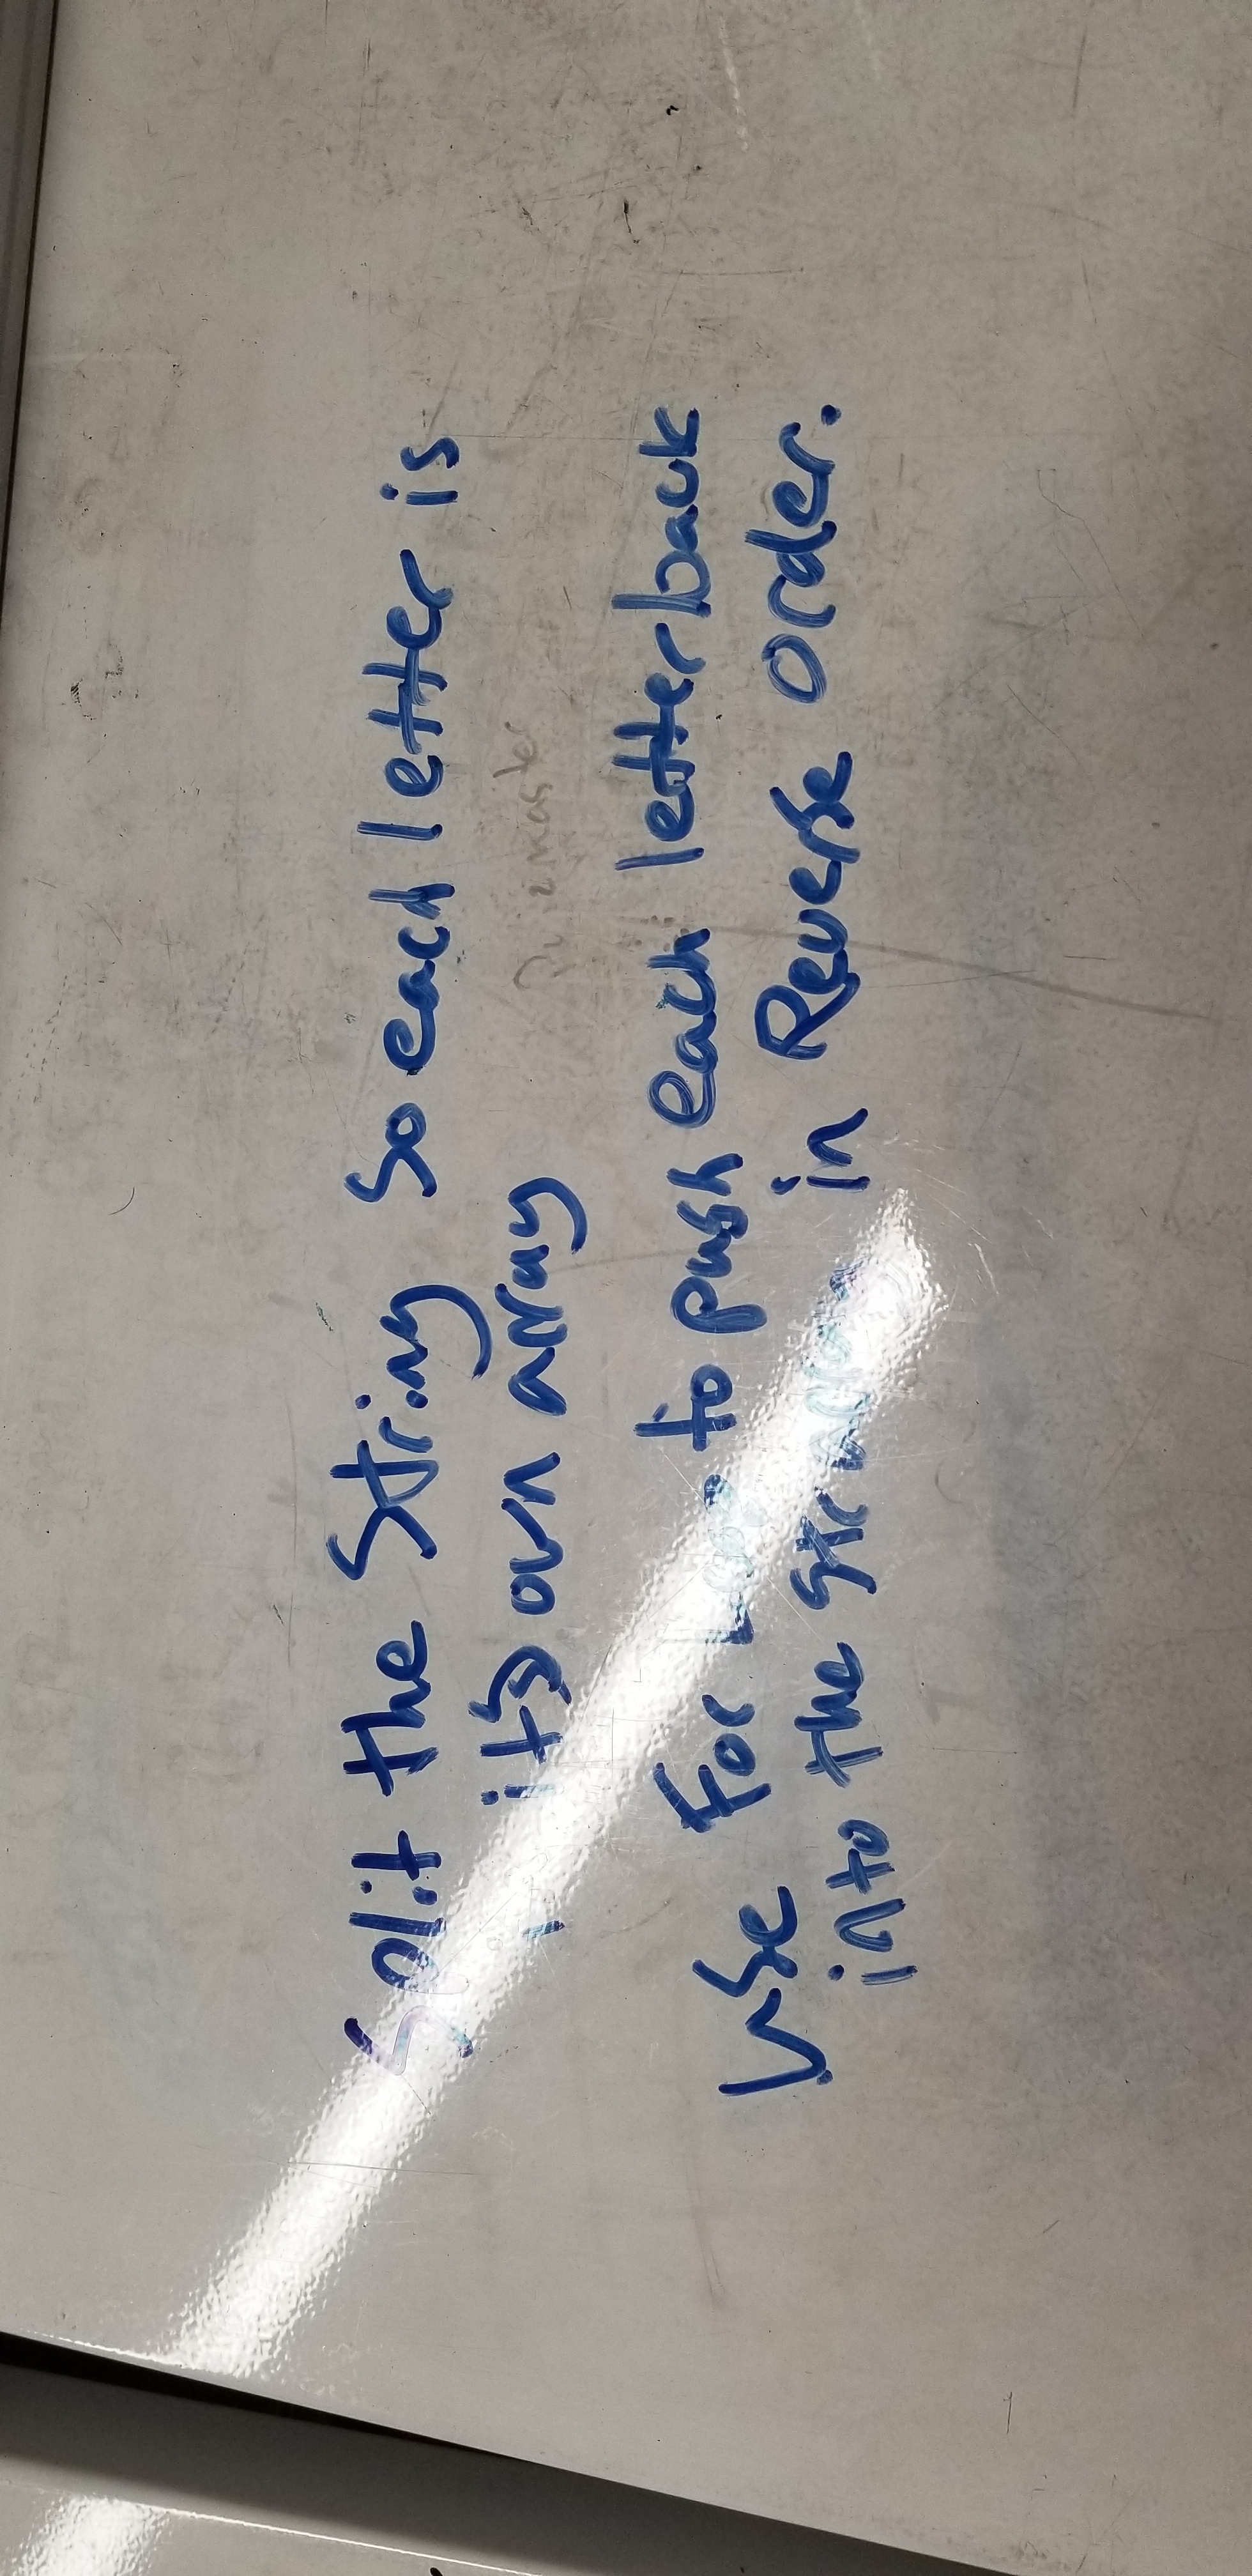 Split the String so each letter is
in its own array
use For Loop to push each letter back
into the str array in Reverse Order.